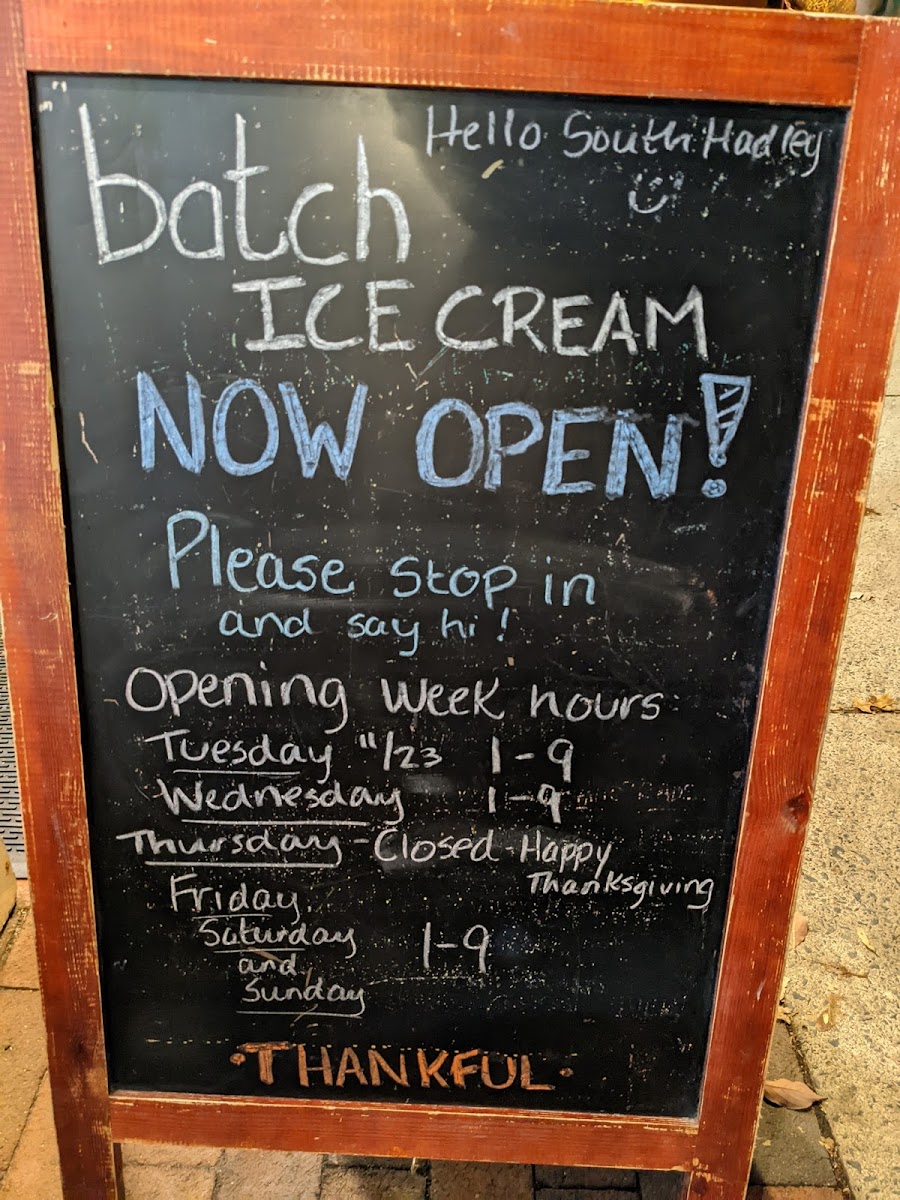 Hello South Hadley
batch
ICE CREAM
NOW OPEN!
Please stop in
and say hi!
Opening week hours:
Tuesday 11/23 1-9
Wednesday 1-9
Thursday-Closed-Happy
Thanksgiving
Friday,
Saturday
and 1-9
Sunday
•THANKFUL•